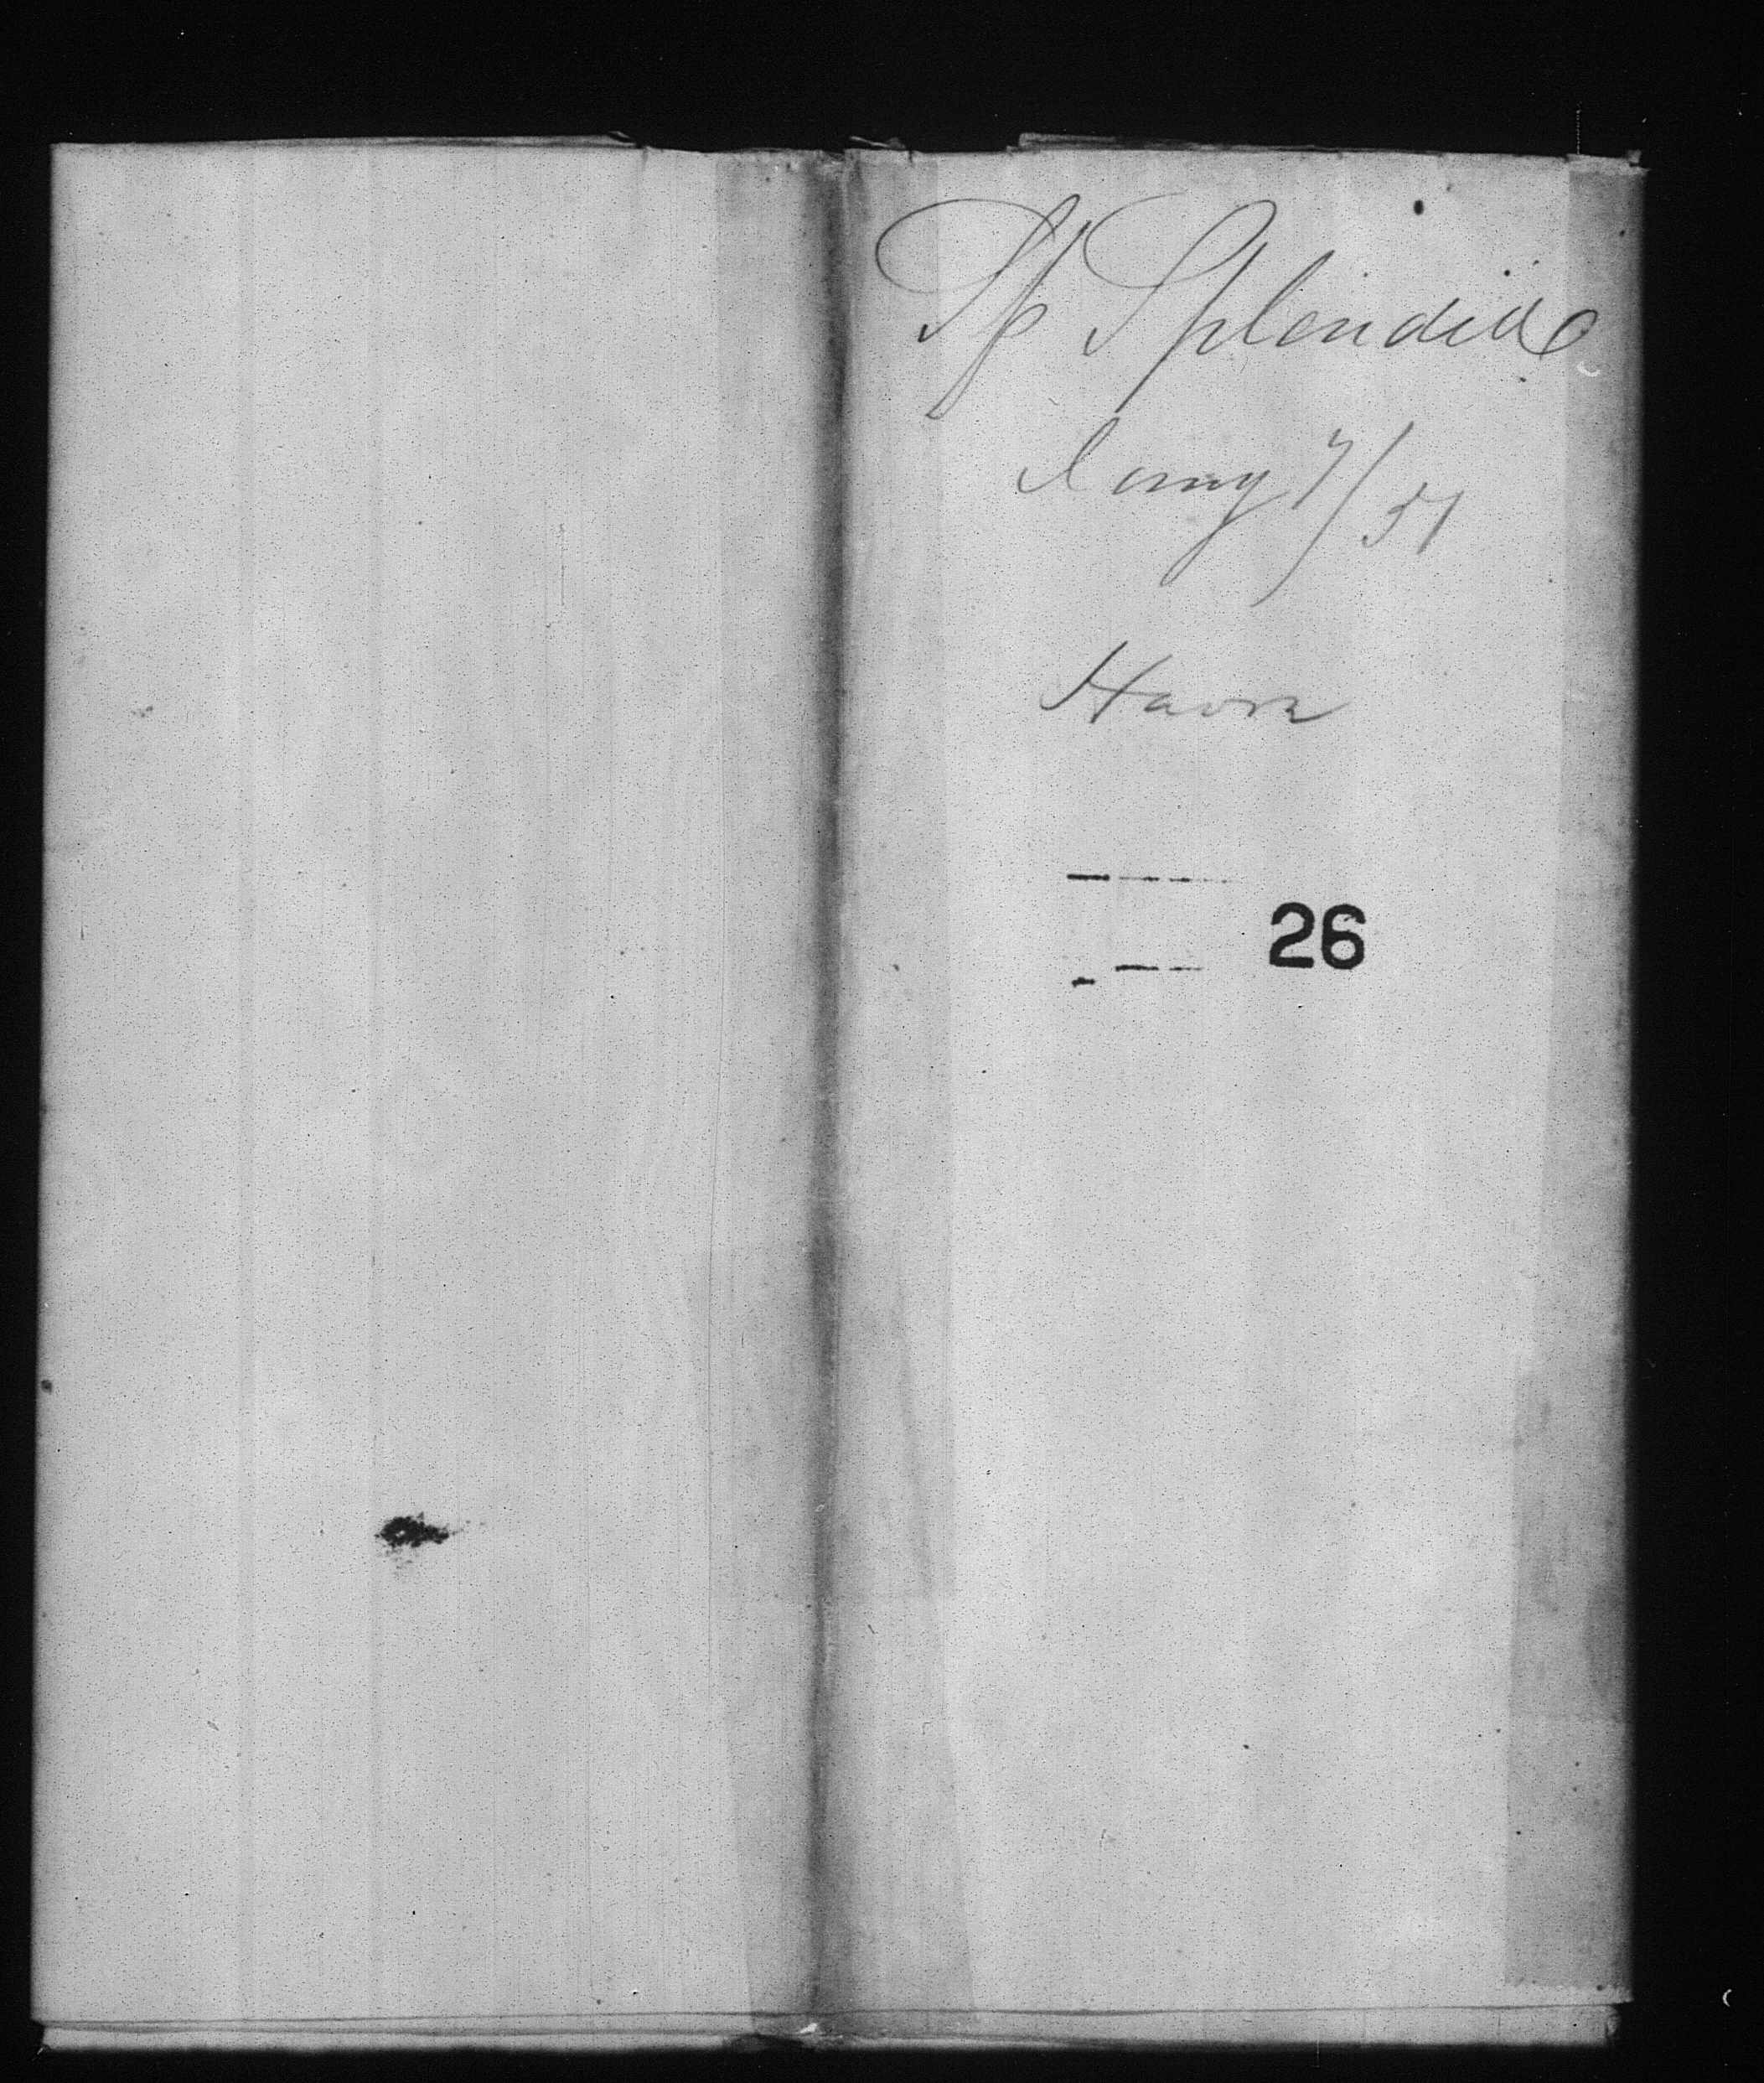 Sp Splendid
Jany 7/51
Havre
26